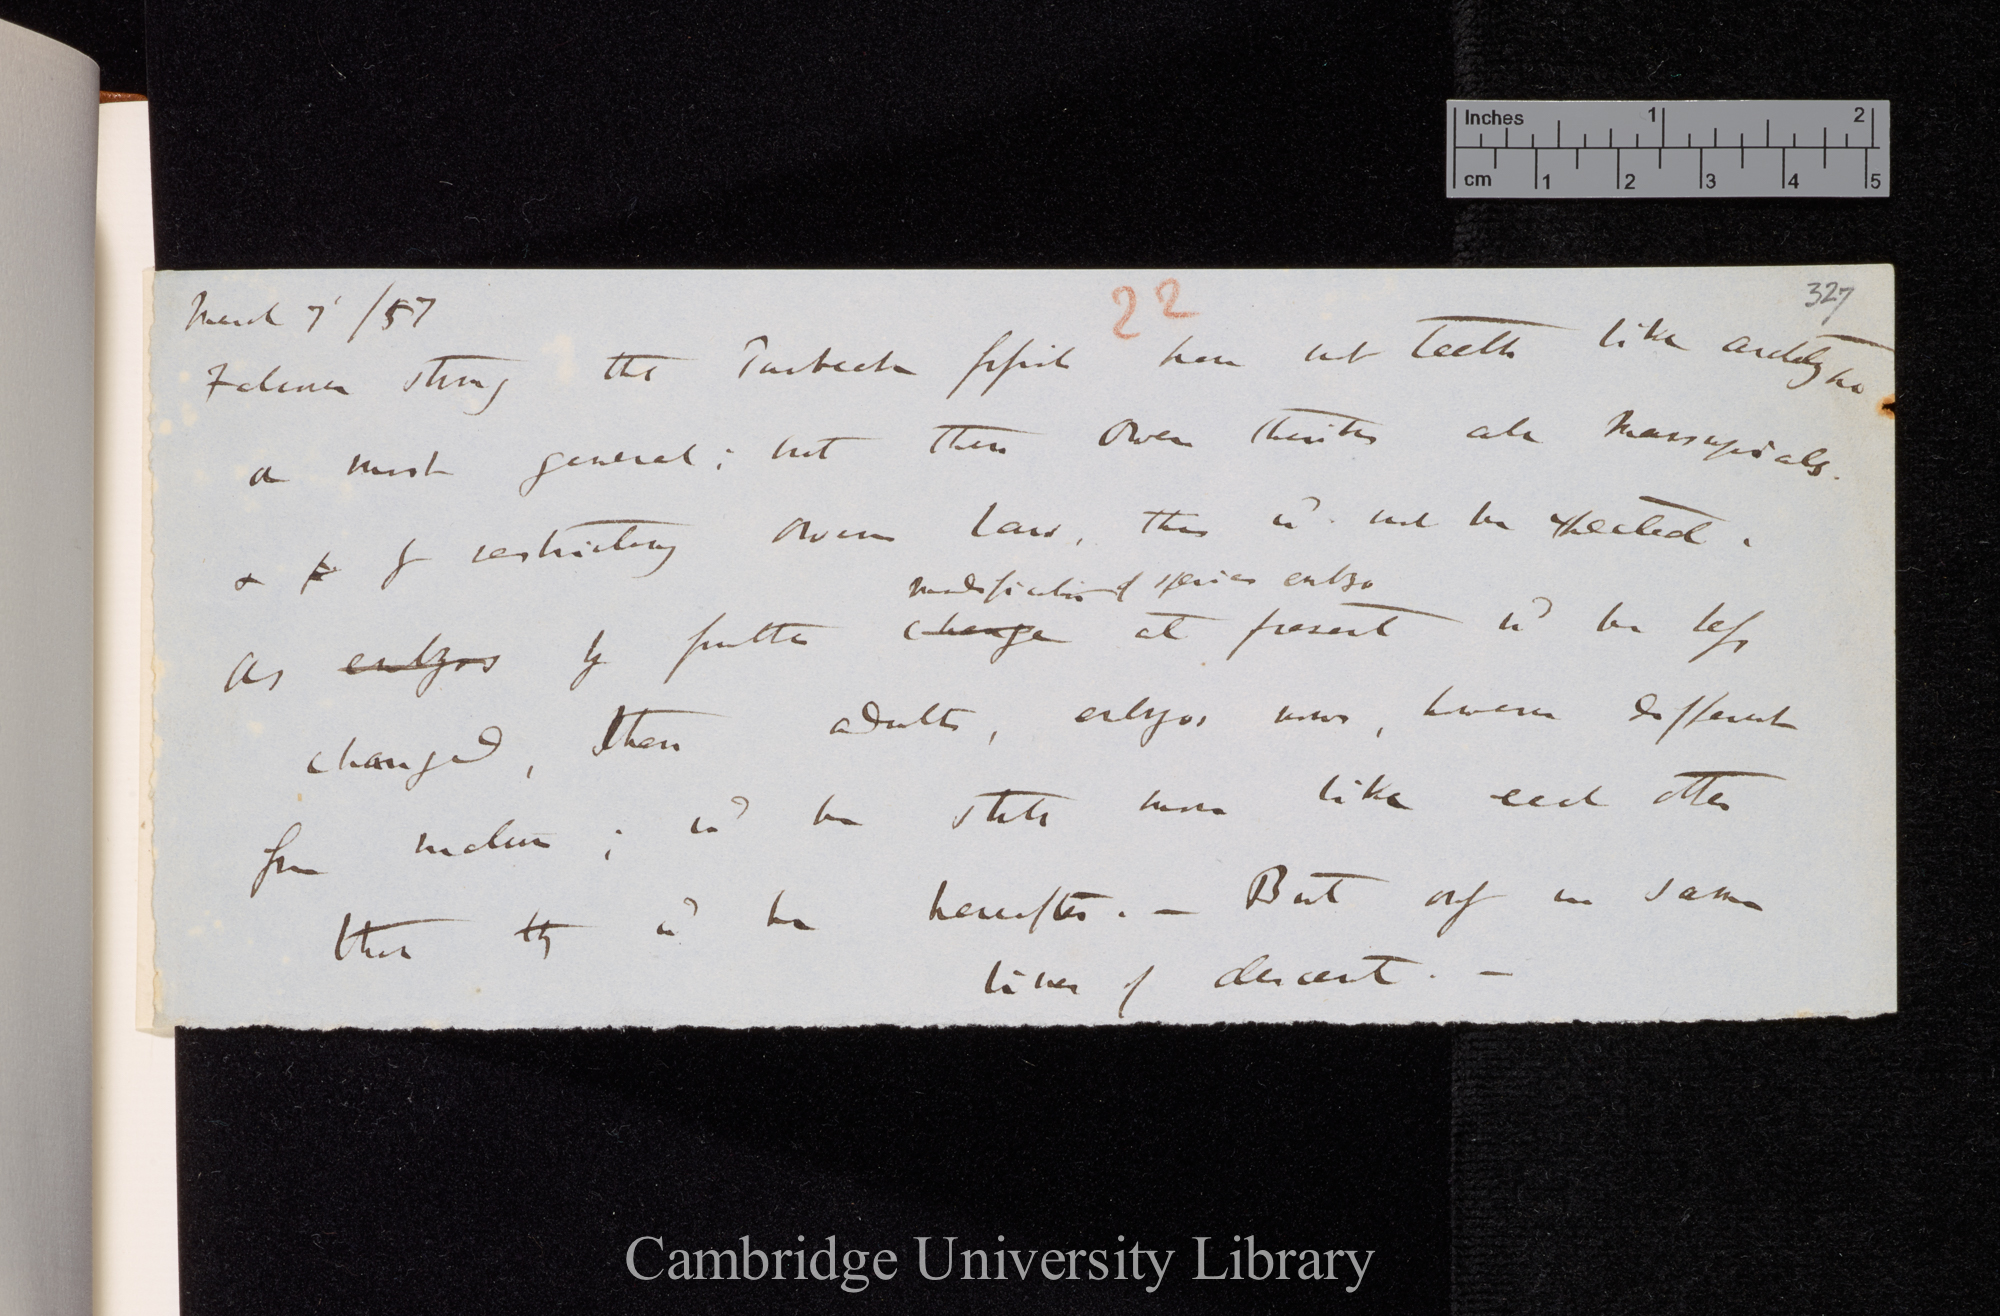 Inches 1 2
cm 1 2 3 4 5
22
327
March 7' /57
Falconer strong that Purbeck fossils have not teeth like archetype
or most general; but then Owen thinks all Marsupials.
& of restricting Owens law, this wd. not be expected.
modification of species embryo
As embryos by further change at present wd be less
changed, than adults, embryos now, however different
from mature; wd be still more like each other
than they wd be hereafter. — But only in same
lines of descent. —
Cambridge University Library